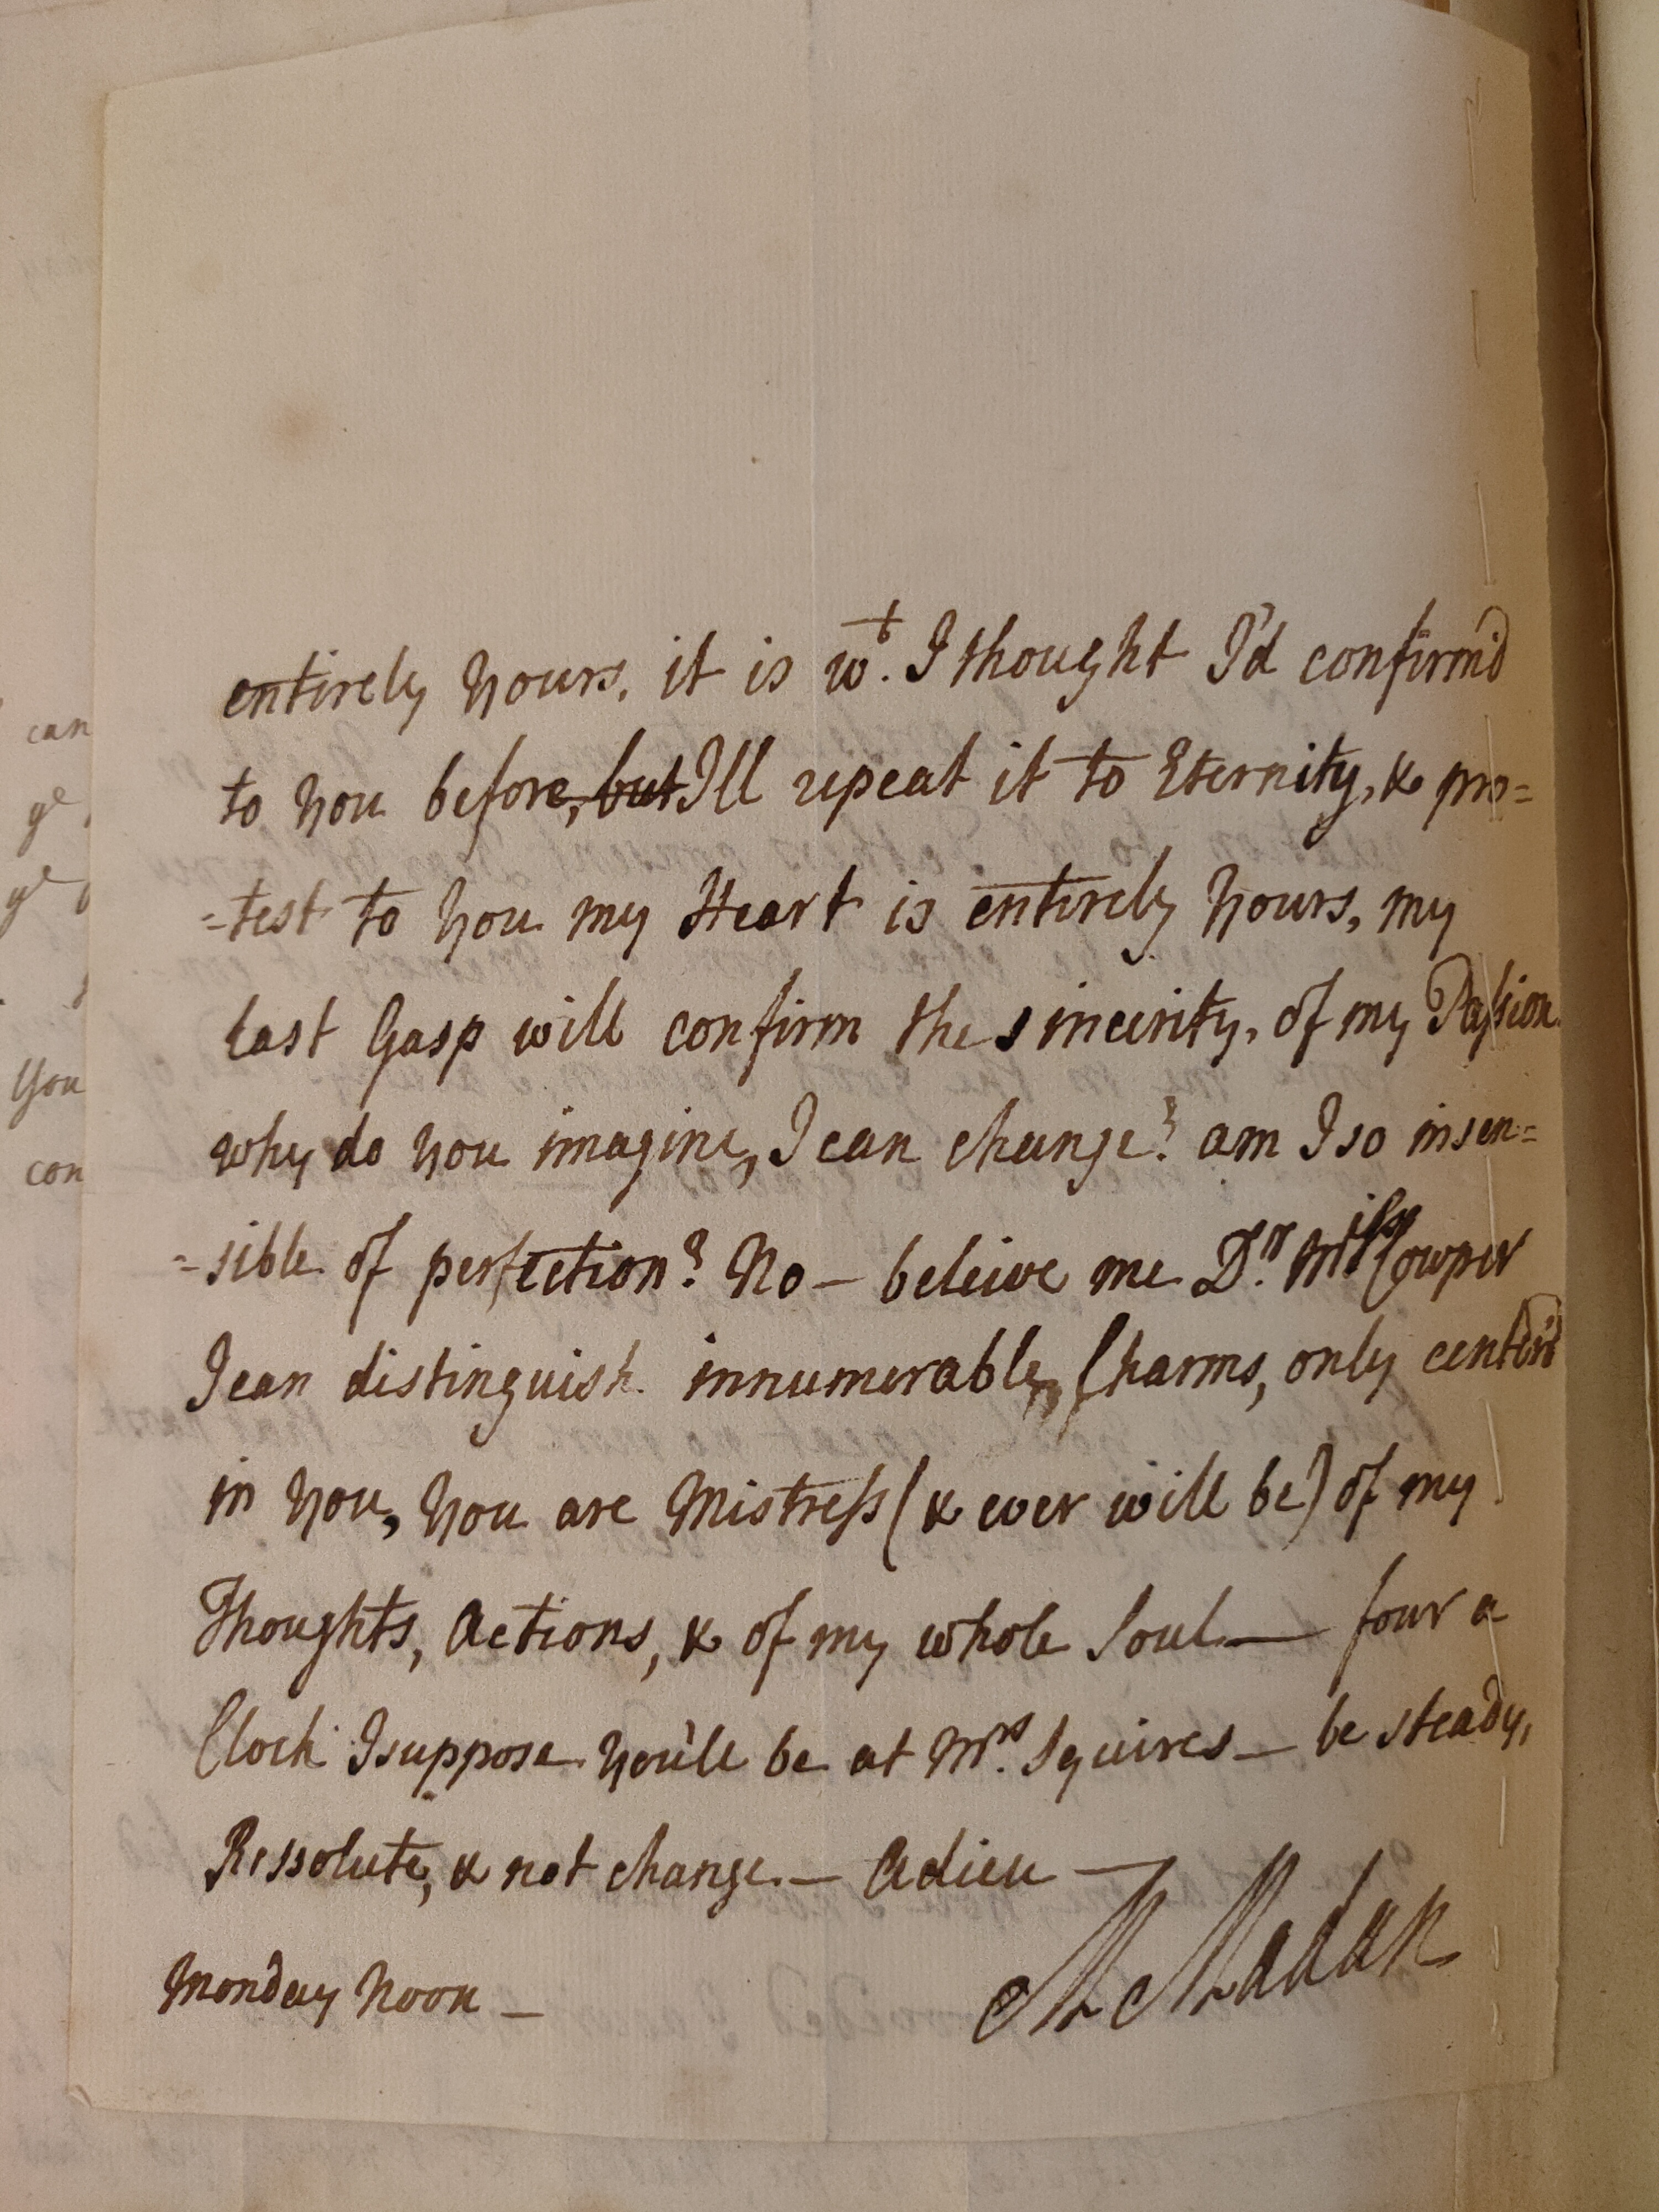 entirely yours, it is wt. I thought I'd confirm'd
to you before, but I'll repeat it to Eternity, & pro=
=test to you my Heart is entirely yours, my
last Gasp will confirm the sincerity, of my Passion.
why do you imagine, I can change? am I so insen=
=sible of perfection? No — beleive me Dr. Miss Cowper
I can distinguish innumerable, Charms, only center'd
in you, you are Mistress (& ever will be) of my
Thoughts, Actions, & of my whole Soul — four a
Clock I suppose you'll be at Mrs. Squires — be steady,
Ressolute, & not change. — Adieu —
Monday Noon — M Madan
can
ye
ye
You
con